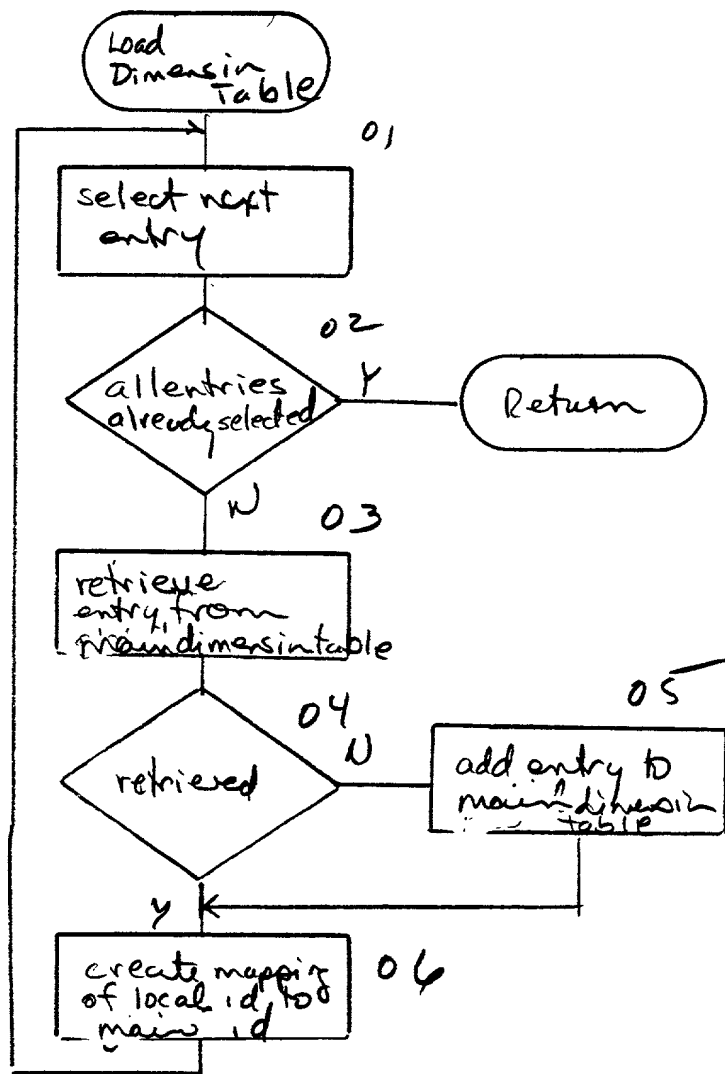 Load
Dimensin
Table
01
select next
entry
02
all entries
already selected
Y
Return
N
03
retrieve
entry from
main dimensin table
04
retrieved
N
05
add entry to
main dimensin
table
Y
06
create mapping
of local id to
main id